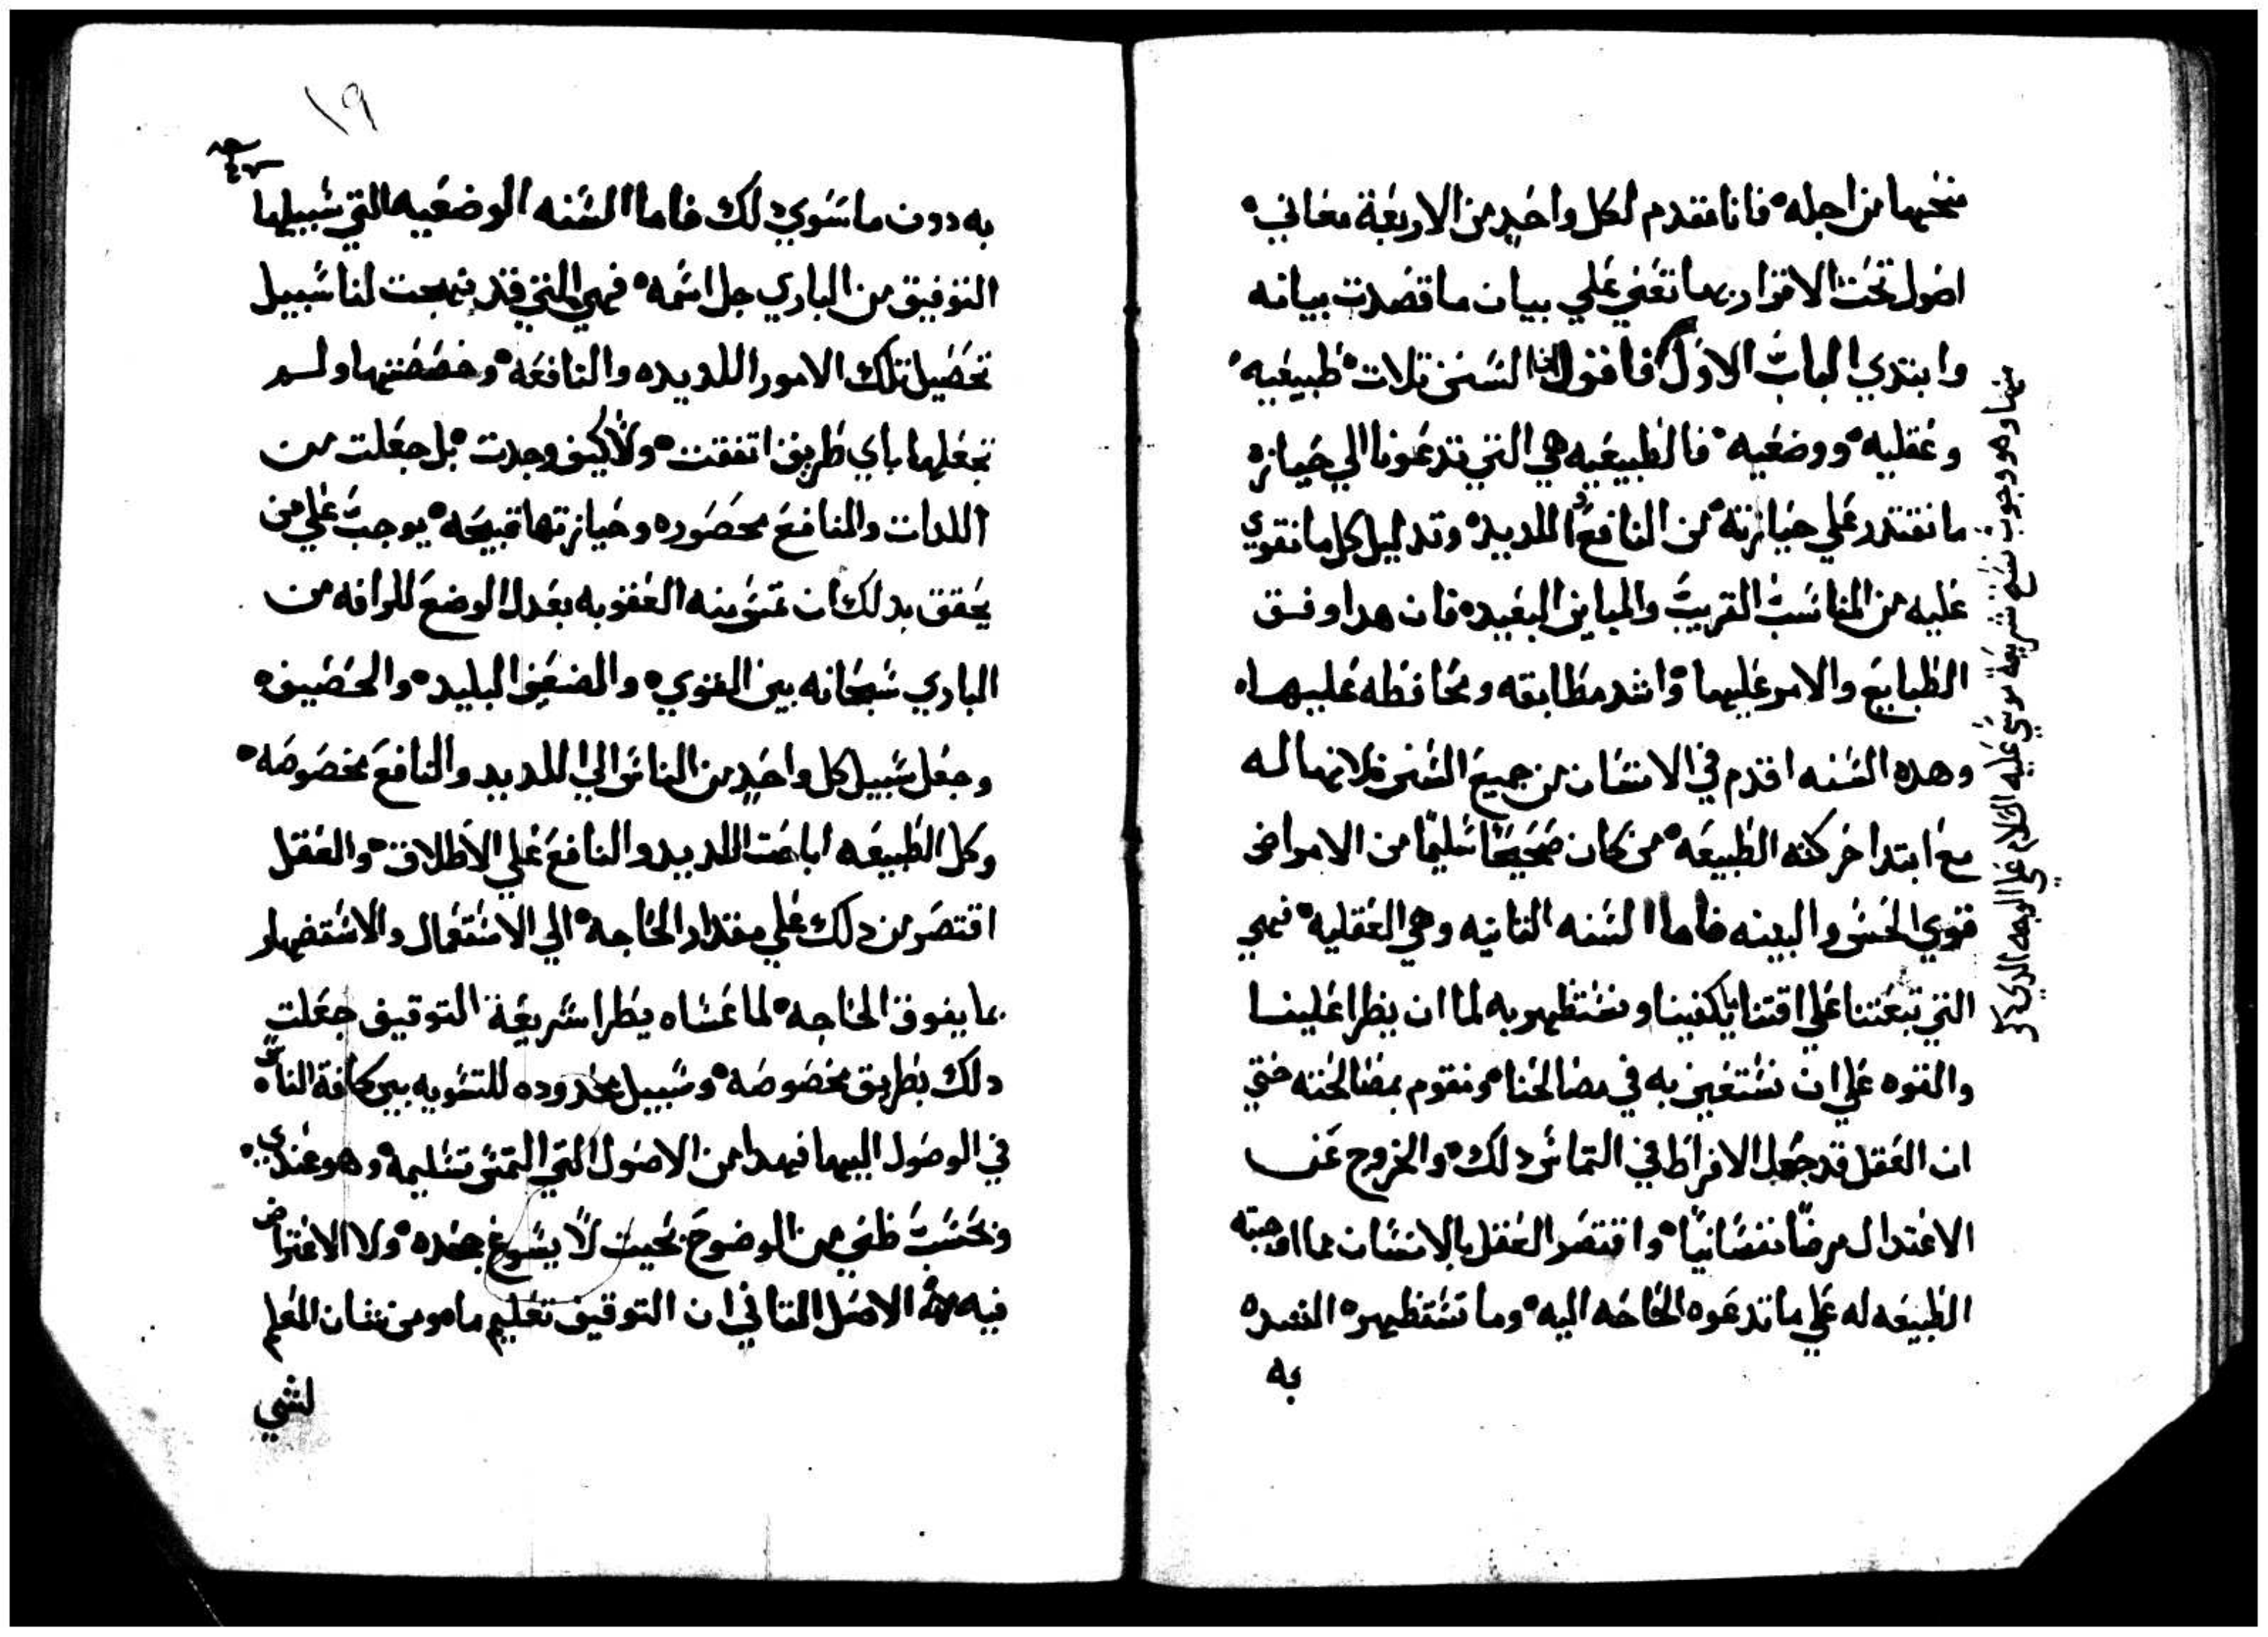 منحيها من اجله فانا نقدم لكل واحد من الاربعة معاني
اصول تحت الاقرار بها تعني علي بيان ما قصدت بيانه
وابتدي الباب الاول فاقول ان السنن تلات طبيعيه
وعقليه ووضعيه فالطبيعيه هي التي تدعونا الي حيازه
ما نقتدر علي حيازته من النافع واللديد وتدليل كل ما نقوي
عليه من المناسب القريب والمباين البعيد فان هدا وفق
الطبايع والامر عليها واشد مطابقه ومحافظه عليها
وهده السنه اقدم في الانسان من جميع السنن لانها له
مع ابتدا حركته الطبيعه من كان صحيحا سليما من الامراض
قوي الحس والبينه فاما السنه التانيه وهي العقليه فهي
التي تبعتنا علي اقتنا ما يكفينا ونستظهر به لما ان يطرا علينا
والقوه علي ان نستعين به في مصالحنا ونقوم بمصالحته حتي
ان العقل قد جعل الافراط في التماس دلك والخروج عن
الاعتدال مرضا نفسانيا واقتصر العقل بالانسان مما اوجبته
الطبيعه له علي ما تدعوه الحاجه اليه وما تستظهره
به
منها وهو وجوب نسخ شريعة موسي عليه السلام علي الوجه الدي دكر
١٩
به دون ما سوي دلك فاما السنه الوضعيه التي سبيلها
التوفيق من الباري جل اسمه فهي التي قد نهجت لنا سبيل
تحصيل تلك الامور اللديده والنافعه وخصصتها ولم
تجعلها باي طريق اتفقت ولا كيف وجدت بل جعلت من
اللدات والمنافع محصوره وحيازتها قبيحه يوجب علي من
يحقق بدلك ان تمسه منه العقوبه بعدل الوضع للرافه من
الباري سبحانه بين القوي والضعيف البليد والحصيف
وجعل سبيل كل واحد من الناس الي اللديد والنافع مخصوصه
وكل الطبيعه اباحت اللديد والنافع علي الاطلاق والعقل
اقتصر من دلك علي مقدار الحاجه الي الاستعمال والاستضهار
بما يفوق الحاجه لما عساه يطرا شريعة التوقيف جعلت
دلك بطريق مخصوصه وسبيل محدوده للتسويه بين كافة الناس
في الوصول اليها فهدا من الاصول التي التمس تسليمه وهو عندي
وبحسب ظني من الوضوح بحيت لا يسوغ جحده ولا الاعتراض
فيه الاصل التاني ان التوقيف تعليم ما هو من شان المعلم
لشي